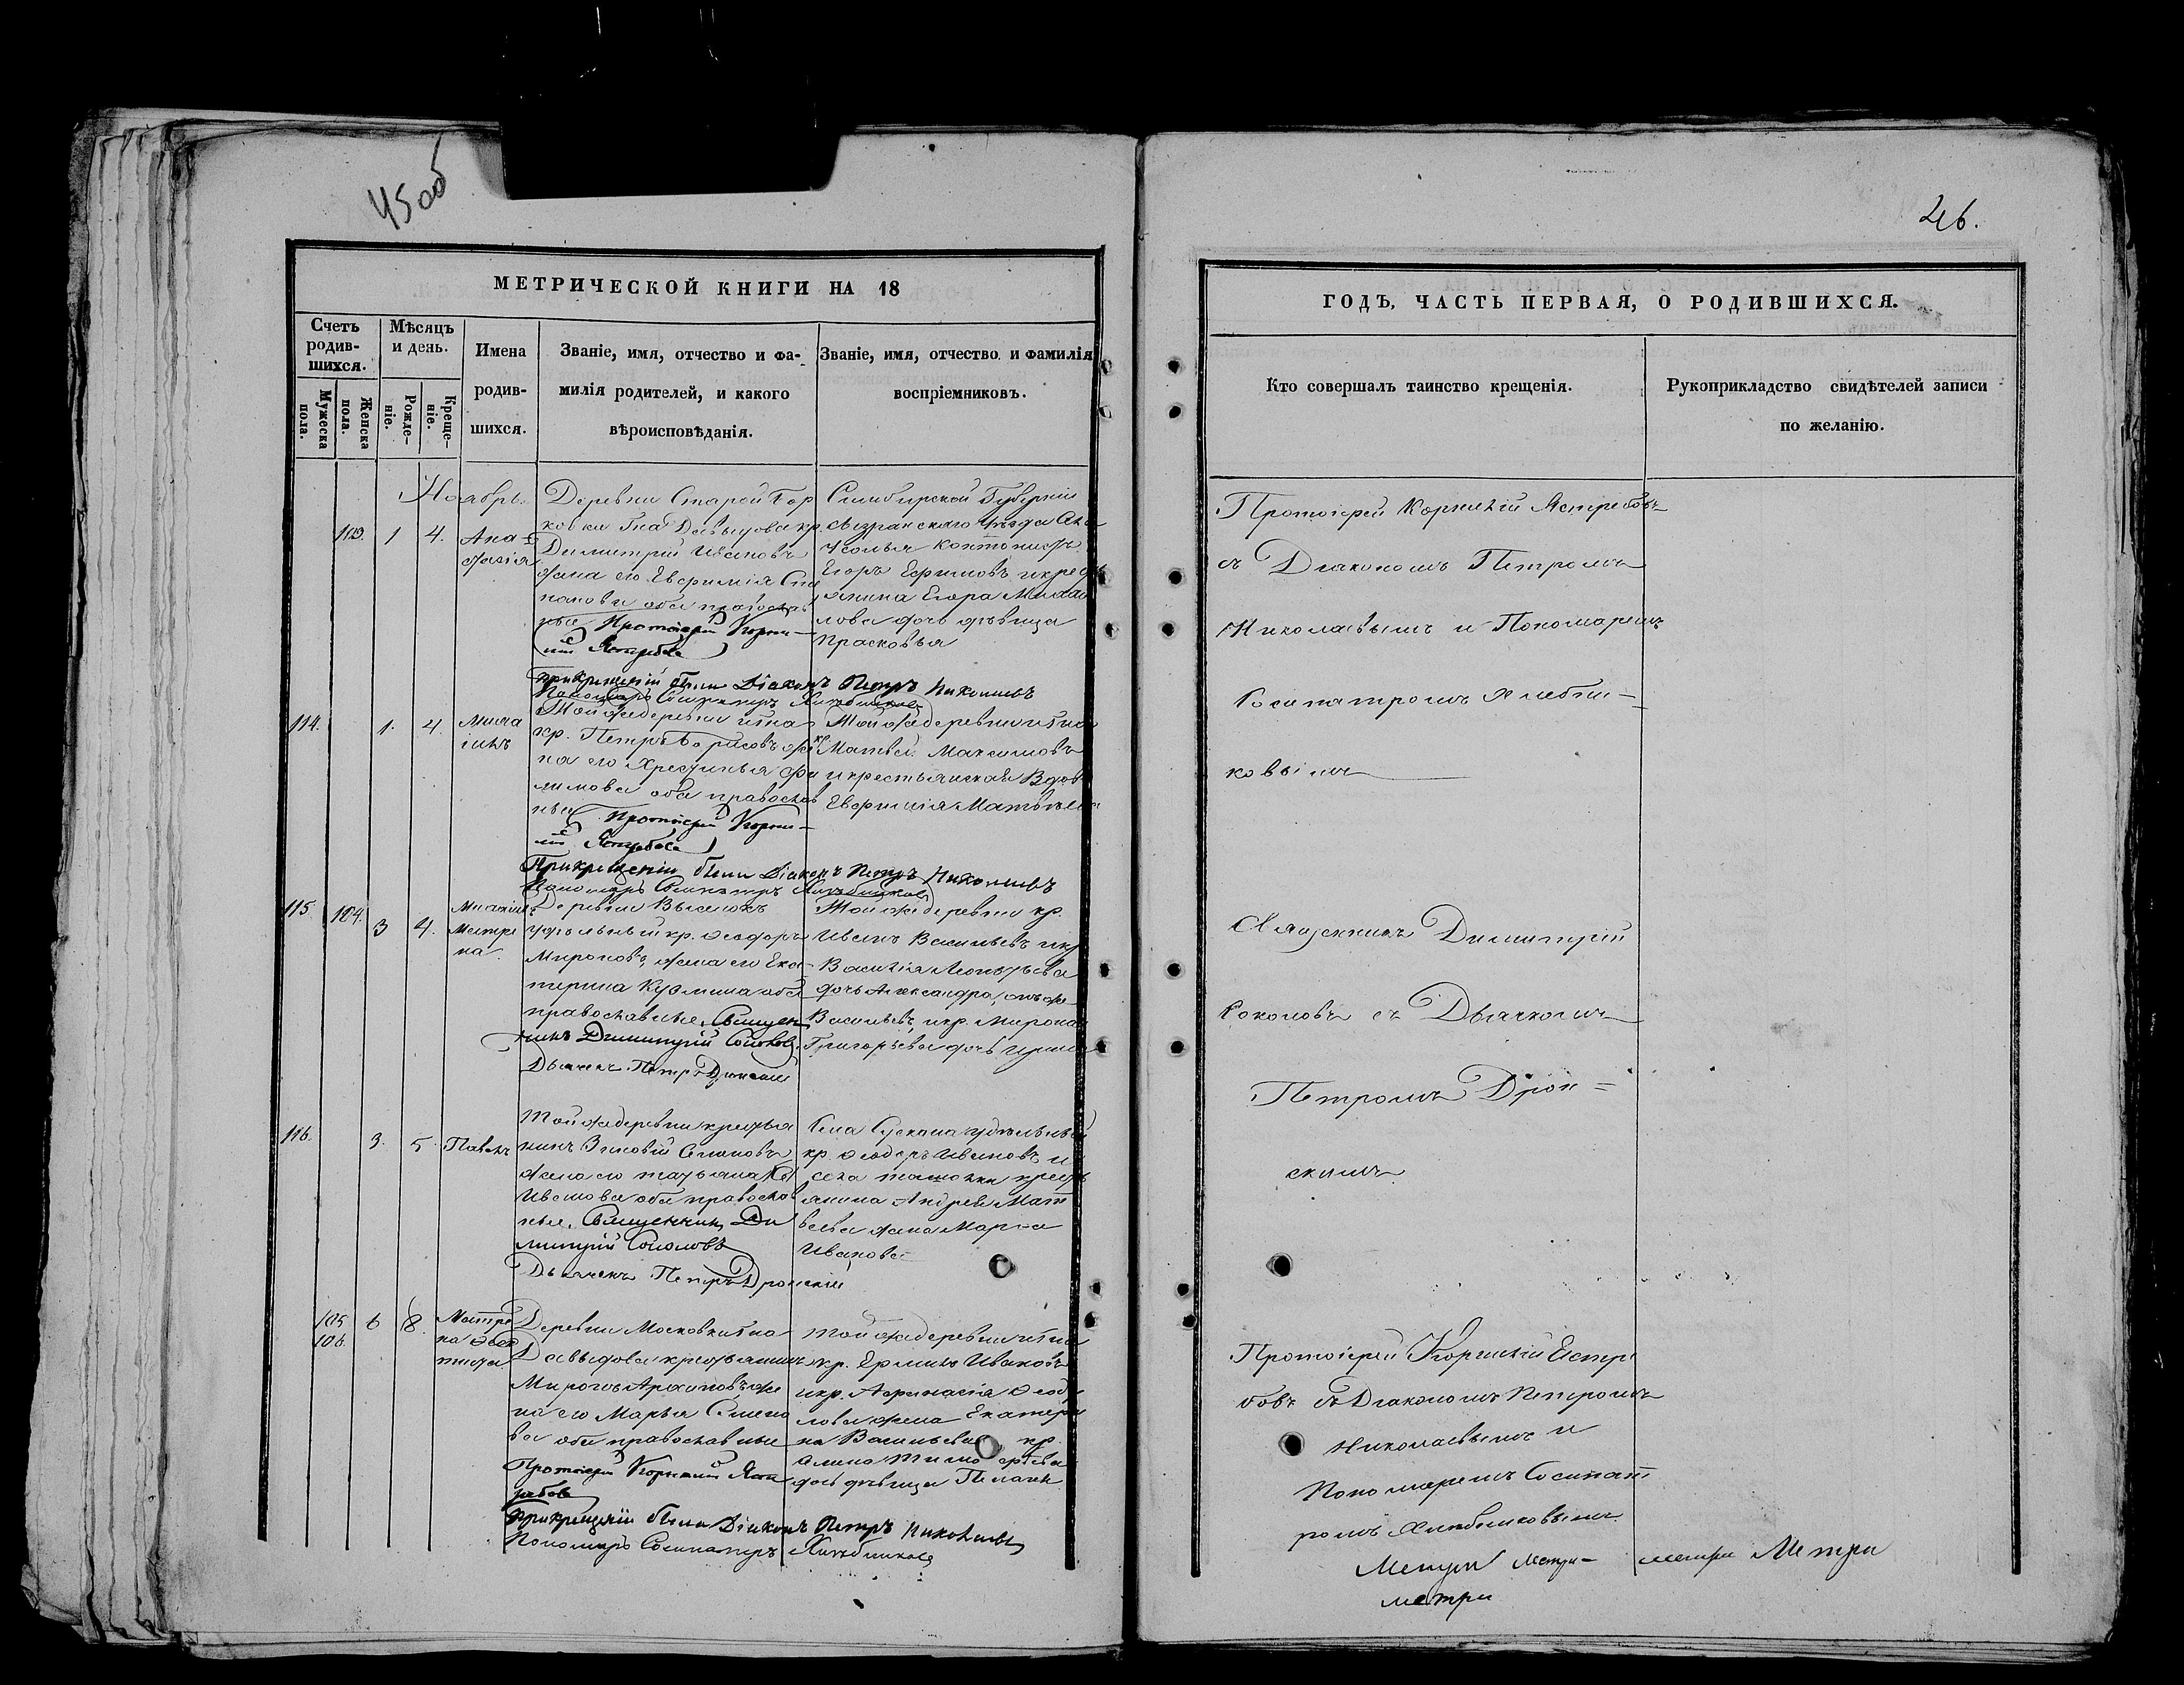 45об
МЕТРИЧЕСКОЙ КНИГИ НА 18
Счетъ родив-шихся.
Мѣсяцъ и день.
Мужеска пола.
Женска пола.
Рожде-ніе.
Креще-ніе.
Имена родив-шихся.
Званіе, имя, отчество и фа-
милія родителей, и какого
вѣроисповѣданія.
Званіе, имя, отчество и фамилія
воспріемниковъ.
Ноябрь
103. 1 4.
Ана
стасія
Деревни Старой
Давыдова кр.
Димитрій Ивановъ
жена его Евфимія
оба православ
ные Протоіерей Корни-
лій Ястребовъ
Симбирской Губерніи
Сызранскаго Уѣзда
Усолья контористъ
Егоръ Ефимовъ и крест
янина Егора Михаи
лова дочь дѣвица
Прасковья
При крещеніи были Діаконъ Петръ Николаевъ
Пономарь Сосипатръ Хлѣбниковъ
114. 1. 4.
Миха
илъ
Той же деревни
кр. Петръ Борисовъ же
на его Хрестинья Фи
лимонова оба православ
ные Протоіерей Корни-
лій Ястребовъ
Той же деревни
Матвей Максимовъ
и крестьянская Вдова
Евфимія Матвѣева
При крещеніи были Діаконъ Петръ Николаевъ
Пономарь Сосипатръ Хлѣбниковъ
115. 104. 3 4.
Михаилъ
Матре
на
Деревни Выселокъ
удѣльный кр. Ѳеодоръ
Мироновъ, жена его Ека-
терина Кузмина оба
православные, Священ
никъ Димитрій Соколовъ
Дьячекъ Петръ Дронскій
Той же деревни кр.
Иванъ Васильевъ и кр.
Василія Леонтьева
дочь Александра,
Васильевъ, и кр. Мирона
Григорьева дочь Ирина
116. 3. 5 Павелъ
Той же деревни крестья
нинъ Зиновій Семеновъ
жена его Татьяна
Иванова оба правосла
вные, Священникъ Ди
митрій Соколовъ
Дьячекъ Петръ Дронскій
Села Сускана удѣльный
кр. Ѳеодоръ Ивановъ и
села Ташолки крест
янина Андрея Мат
вѣева жена Марѳа
Иванова
105
106. 6 8.
Матре
на
Деревни Московки
Давыдова крестьянинъ
Миронъ Архиповъ же
на его Марья Семено
ва оба православные
Протоіерей Корнилій Яст
ребовъ
Той же деревни
кр. Ермилъ Ивановъ
и кр. Афанасія Ѳеодо
лова жена Екатери
на Васильева кр.
дочь дѣвица Пелагея
При крещеніи были Діаконъ Петръ Николаевъ
Пономарь Сосипатръ Хлѣбниковъ
46.
ГОДЪ, ЧАСТЬ ПЕРВАЯ, О РОДИВШИХСЯ.
Кто совершалъ таинство крещенія.
Рукоприкладство свидѣтелей записи
по желанію.
Протоіерей Корнилій Ястребовъ
съ Діакономъ Петромъ
Николаевымъ и Пономаремъ
Сосипатромъ Хлебни-
ковымъ
Священникъ Димитрій
Соколовъ съ Дьячкомъ
Петромъ Дрон=
скимъ
Протоіерей Корнилій Ястре
бовъ съ Діакономъ Петромъ
Николаевымъ и
Пономаремъ Сосипат
ромъ Хлѣбниковымъ
Метри Метри- метри Метри
метри